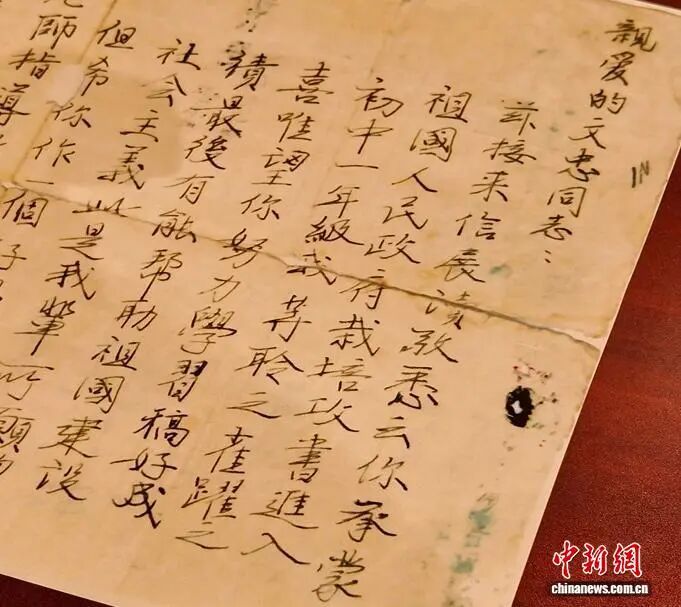 親愛的文忠同志：
茲接来信展讀敬悉云你承蒙
祖國人民政府栽培攻書進入
初中一年級我等聆之雀躍之
喜唯望你努力學習稿好成
績最後有能幫助祖國建设
社会主義此是我輩所願
但希你作一個好
老師指導
中新网
chinanews.com.cn